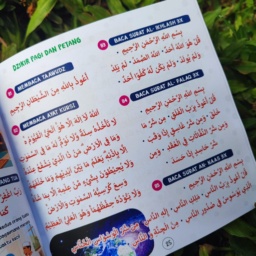 DZIKIR PAGI DAN PETANG
01 MEMBACA TAAWUDZ
أَعُوذُ بِاللهِ مِنَ الشَّيْطَانِ الرَّجِيْمِ
02 MEMBACA AYAT KURSI
اللهُ لَا إِلَهَ إِلَّا هُوَ الْحَيُّ الْقَيُّوْمُ
لَا تَأْخُذُهُ سِنَةٌ وَلَا نَوْمٌ لَهُ مَا فِي السَّمَوَاتِ
وَمَا فِي الْأَرْضِ مَنْ ذَا الَّذِي يَشْفَعُ عِنْدَهُ
إِلَّا بِإِذْنِهِ يَعْلَمُ مَا بَيْنَ أَيْدِيْهِمْ وَمَا خَلْفَهُمْ
وَلَا يُحِيْطُوْنَ بِشَيْءٍ مِنْ عِلْمِهِ إِلَّا بِمَا شَاءَ
وَسِعَ كُرْسِيُّهُ السَّمَوَاتِ وَالْأَرْضَ
وَلَا يَئُوْدُهُ حِفْظُهُمَا وَهُوَ الْعَلِيُّ الْعَظِيْمُ
03 BACA SURAT AL-IKHLASH 3X
بِسْمِ اللهِ الرَّحْمَنِ الرَّحِيْمِ
قُلْ هُوَ اللهُ أَحَدٌ . اللهُ الصَّمَدُ . لَمْ يَلِدْ
وَلَمْ يُوْلَدْ . وَلَمْ يَكُنْ لَهُ كُفُوًا أَحَدٌ
04 BACA SURAT AL-FALAQ 3X
بِسْمِ اللهِ الرَّحْمَنِ الرَّحِيْمِ
قُلْ أَعُوْذُ بِرَبِّ الْفَلَقِ . مِنْ شَرِّ مَا
خَلَقَ . وَمِنْ شَرِّ غَاسِقٍ إِذَا وَقَبَ .
وَمِنْ شَرِّ النَّفَّاثَاتِ فِي الْعُقَدِ . وَمِنْ
شَرِّ حَاسِدٍ إِذَا حَسَدَ
05 BACA SURAT AN-NAAS 3X
بِسْمِ اللهِ الرَّحْمَنِ الرَّحِيْمِ
قُلْ أَعُوْذُ بِرَبِّ النَّاسِ . مَلِكِ النَّاسِ .
إِلَهِ النَّاسِ . مِنْ شَرِّ الْوَسْوَاسِ الْخَنَّاسِ
الَّذِي يُوَسْوِسُ فِي صُدُوْرِ النَّاسِ . مِنَ الْجِنَّةِ وَالنَّاسِ